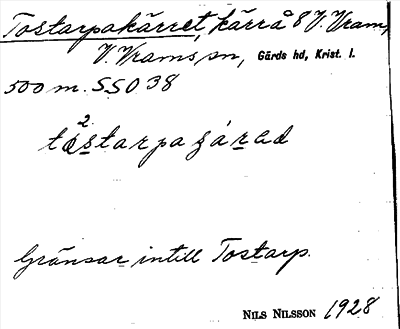 Tostarpakärret, kärrå 8 V. Vram,
V. Vrams sn, Gärds hd, Krist. l.
500 m. SSO 38
2
tåstarpa
Gränsar intill Tostarp.
NILS NILSSON 1928